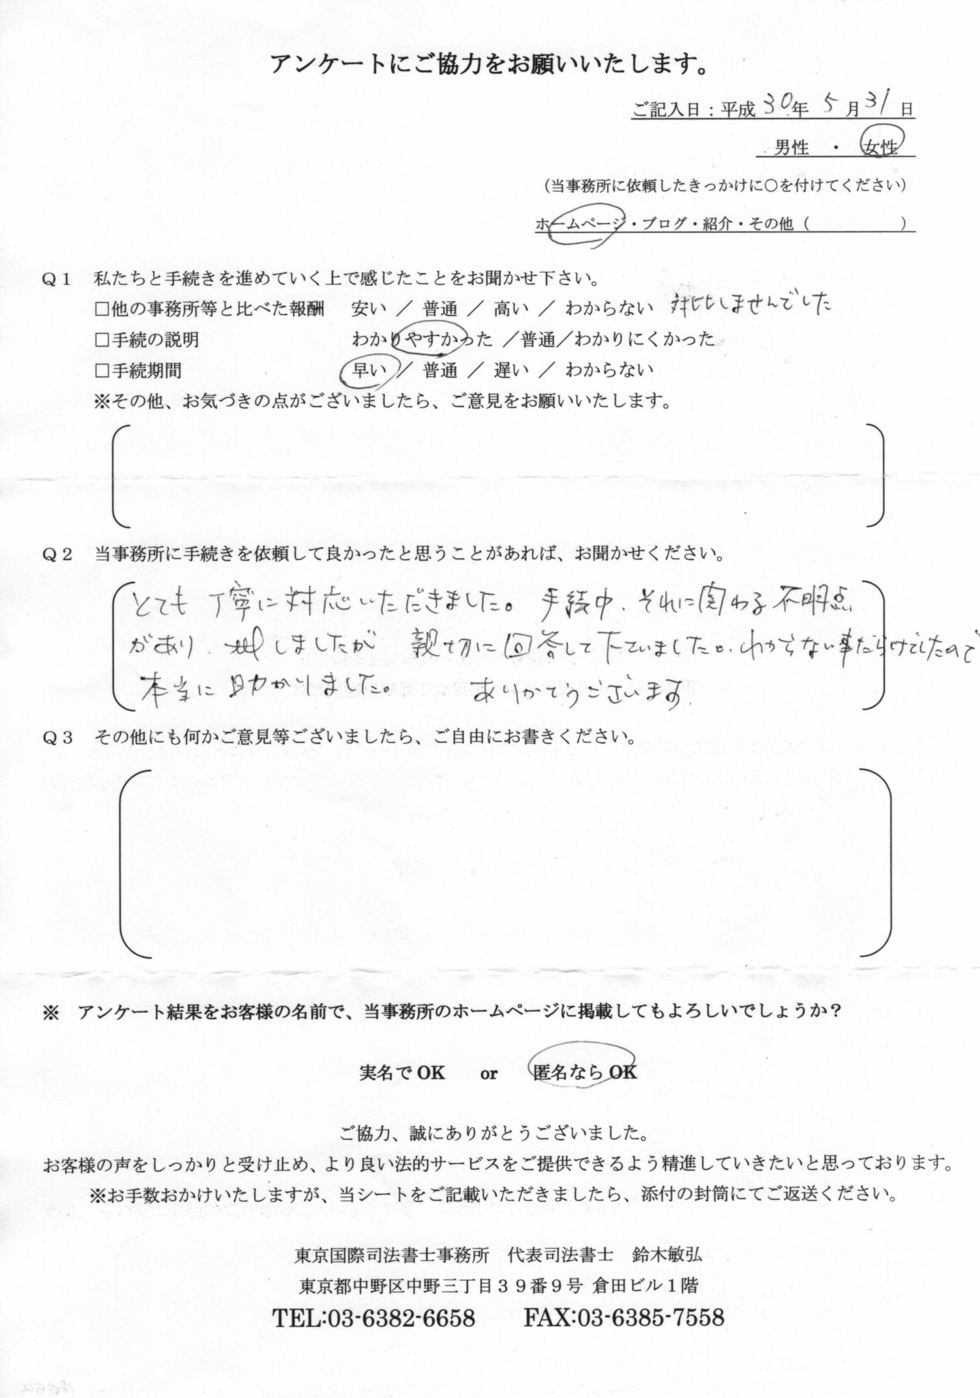 アンケートにご協力をお願いいたします。
ご記入日：平成 30年 5月 31日
男性 ・ 女性
（当事務所に依頼したきっかけに○を付けてください）
ホームページ・ブログ・紹介・その他（　　　　　）
Ｑ１　私たちと手続きを進めていく上で感じたことをお聞かせ下さい。
□他の事務所等と比べた報酬　安い ／ 普通 ／ 高い ／ わからない　対比しませんでした
□手続の説明　わかりやすかった ／普通／わかりにくかった
□手続期間　早い ／ 普通 ／ 遅い ／ わからない
※その他、お気づきの点がございましたら、ご意見をお願いいたします。
Ｑ２　当事務所に手続きを依頼して良かったと思うことがあれば、お聞かせください。
とても丁寧に対応いただきました。手続中、それに関わる不明点
があり、しましたが　親切に回答して下さいました。わからない事だらけでしたので
本当に助かりました。　ありがとうございます。
Ｑ３　その他にも何かご意見等ございましたら、ご自由にお書きください。
※　アンケート結果をお客様の名前で、当事務所のホームページに掲載してもよろしいでしょうか？
実名でOK　or　匿名ならOK
ご協力、誠にありがとうございました。
お客様の声をしっかりと受け止め、より良い法的サービスをご提供できるよう精進していきたいと思っております。
※お手数おかけいたしますが、当シートをご記載いただきましたら、添付の封筒にてご返送ください。
東京国際司法書士事務所　代表司法書士　鈴木敏弘
東京都中野区中野三丁目３９番９号 倉田ビル１階
TEL:03-6382-6658　FAX:03-6385-7558